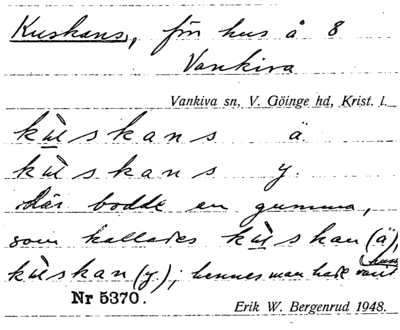 Kuskans, förr hus å 8
Vankiva
Vankiva sn, V. Göinge hd, Krist. l.
kùskans ä.
kùskans y.
där bodde en gumma,
som kallades kùskan (ä),
kùskan (y); hennes man hade varit
Nr 5370.
Erik W. Bergenrud 1948.